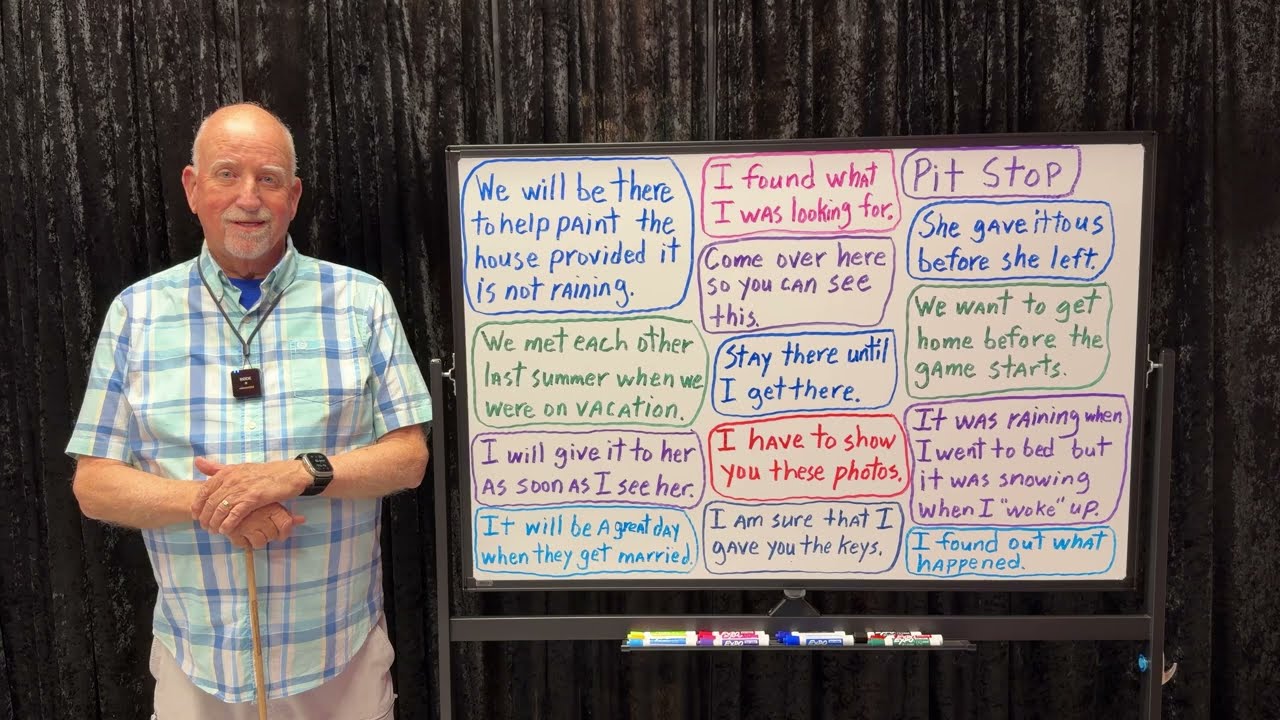 We will be there
to help paint the
house provided it
is not raining.
We met each other
last summer when we
were on vacation.
I will give it to her
as soon as I see her.
It will be a great day
when they get married.
I found what
I was looking for.
Come over here
so you can see
this.
Stay there until
I get there.
I have to show
you these photos.
I am sure that I
gave you the keys.
Pit Stop
She gave it to us
before she left.
We want to get
home before the
game starts.
It was raining when
I went to bed but
it was snowing
when I "woke" up.
I found out what
happened.
EXPO
EXPO
EXPO